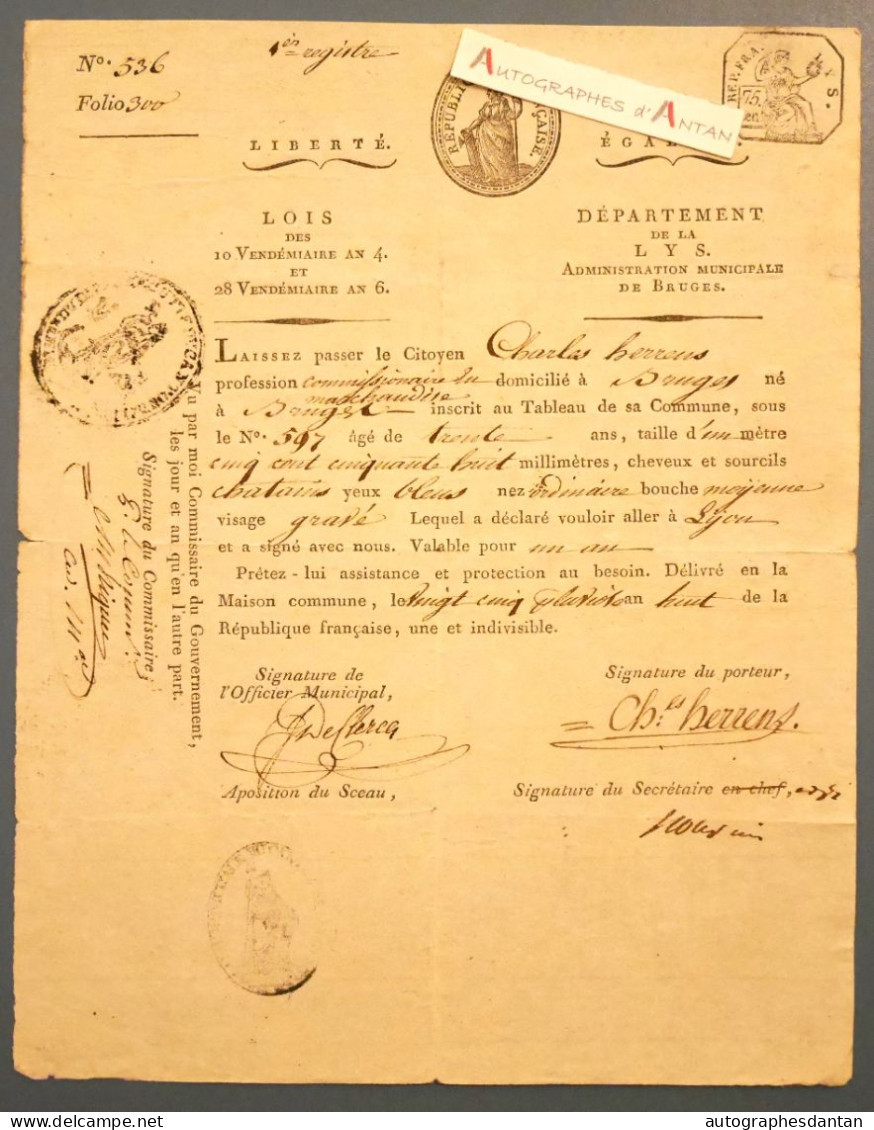 Nº. 536
1er registre
Folio 300
AUTOGRAPHES d'ANTAN
RÉPUBLIQUE FRANÇAISE.
REP. FRA.
LYS.
75.
LIBERTÉ.
ÉGAL
LOIS
DES
10 VENDÉMIAIRE AN 4.
ET
28 VENDÉMIAIRE AN 6.
DÉPARTEMENT
DE LA
LYS.
ADMINISTRATION MUNICIPALE
DE BRUGES.
LAISSEZ passer le Citoyen Charles herrens
profession commissionaire du domicilié à Bruges né
marchandise
à Bruges inscrit au Tableau de sa Commune, sous
le Nº. 597 âgé de trente ans, taille d'un mètre
cinq cent cinquante huit millimètres, cheveux et sourcils
chatains yeux bleus nez ordinaire bouche moyenne
visage gravé Lequel a déclaré vouloir aller à Lyon
et a signé avec nous. Valable pour un an
Prétez-lui assistance et protection au besoin. Délivré en la
Maison commune, le vingt cinq pluviose an huit de la
République française, une et indivisible.
Signature de
l'Officier Municipal,
Signature du porteur,
DeClercq
Ch.es herrens.
Aposition du Sceau,
Signature du Secrétaire en chef,
Vu par moi Commissaire du Gouvernement,
les jour et an qu'en l'autre part.
Signature du Commissaire;
autographesdantan